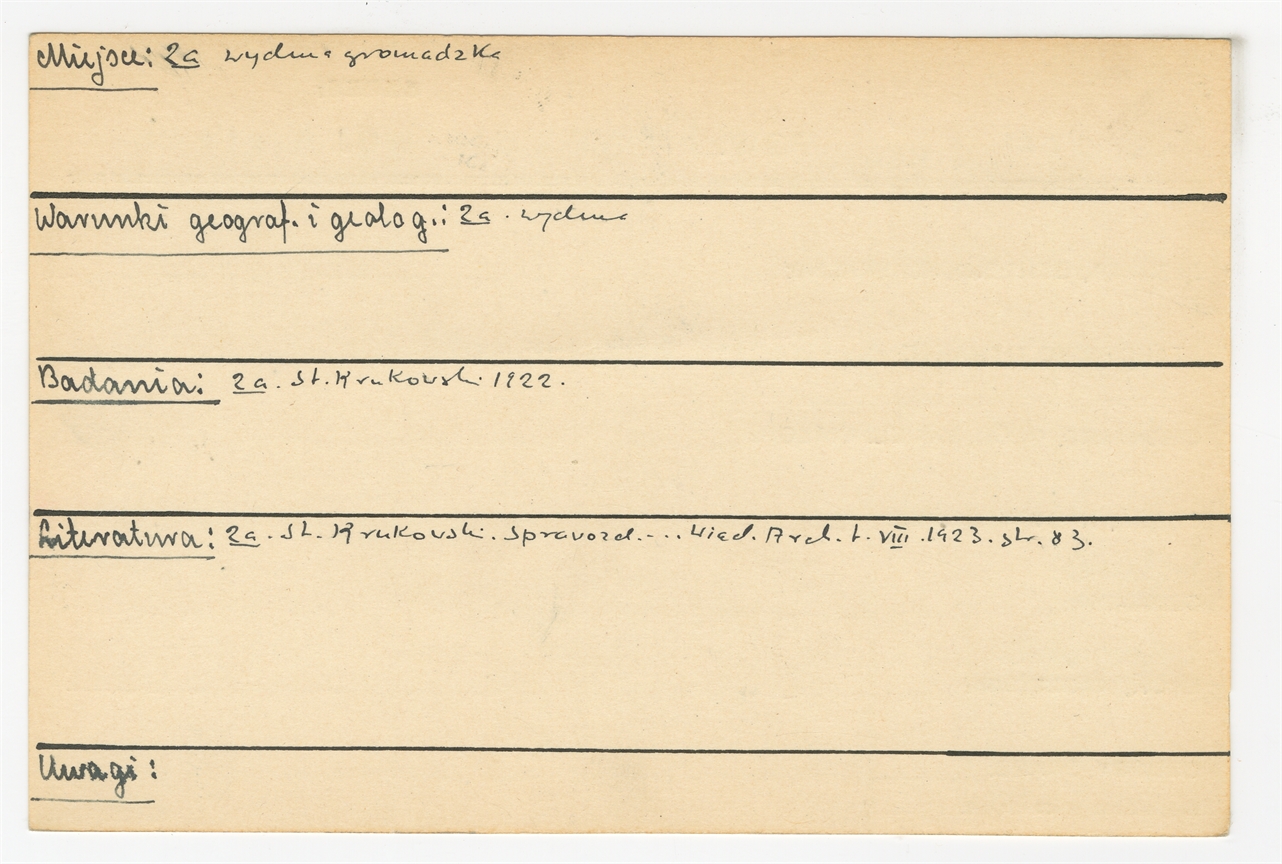 Miejsce: 2a wydma gromadzka
Warunki geograf. i geolog.: 2a. wydma
Badania: 2a. St. Krukowski 1922.
Literatura: 2a. St. Krukowski. Sprawozd.... Wiad. Arch. t. VIII. 1923. str. 83.
Uwagi: